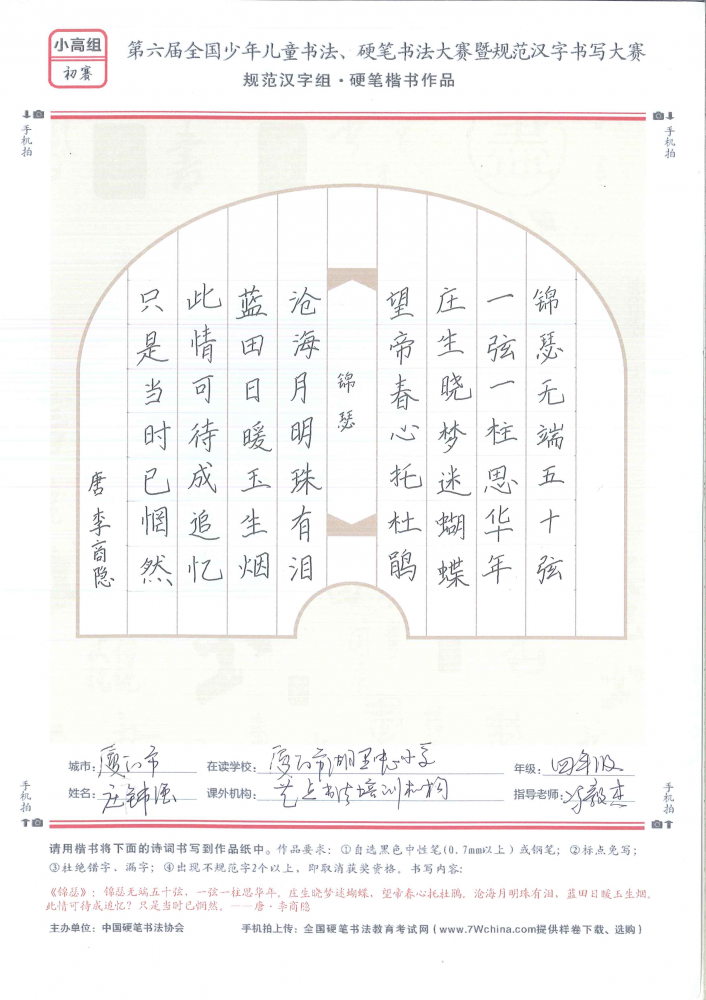 小高组
初赛
第六届全国少年儿童书法、硬笔书法大赛暨规范汉字书写大赛
规范汉字组·硬笔楷书作品
手机拍
手机拍
锦瑟无端五十弦
一弦一柱思华年
庄生晓梦迷蝴蝶
望帝春心托杜鹃
锦瑟
沧海月明珠有泪
蓝田日暖玉生烟
此情可待成追忆
只是当时已惘然
唐 李商隐
城市：厦门市 在读学校：厦门市湖里中心小学 年级：四年级
姓名：庄 强 课外机构：艺点书法培训机构 指导老师：冯毅杰
手机拍
手机拍
请用楷书将下面的诗词书写到作品纸中。作品要求：①自选黑色中性笔(0.7mm以上)或钢笔；②标点免写；
③杜绝错字、漏字；④出现不规范字2个以上，即取消获奖资格。书写内容：
《锦瑟》：锦瑟无端五十弦，一弦一柱思华年。庄生晓梦迷蝴蝶，望帝春心托杜鹃。沧海月明珠有泪，蓝田日暖玉生烟。
此情可待成追忆？只是当时已惘然。——唐·李商隐
主办单位：中国硬笔书法协会 手机拍上传：全国硬笔书法教育考试网（www.7Wchina.com提供样卷下载、选购）